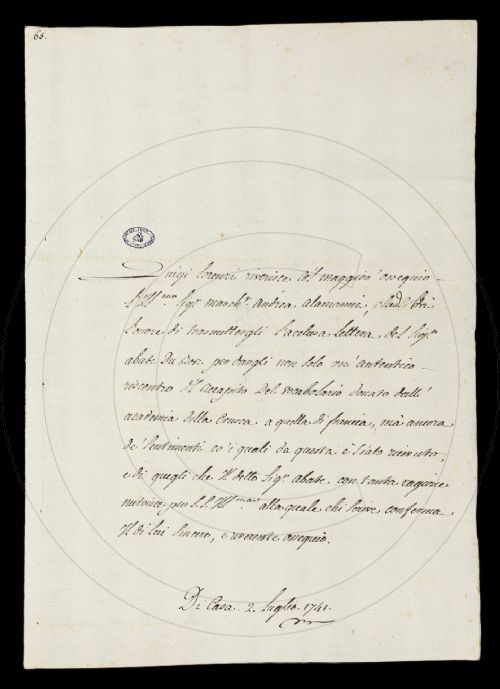 65.
Luigi Lorenzi riverisce col maggior ossequio
l'Ill.mo Sig.re March.e Andrea Alamanni, ed ha
l'onore di trasmettergli l'acclusa lettera del Sig.re
abate Du Bos per dargli non solo un' autentico
riscontro del recapito del vocabolario donato dall'
academia della Crusca a quella di francia, mà ancora
de' sentimenti co' i quali da questa è stato ricevuto,
e di quegli che il detto Sig.re abate con tanta ragione
nutrisce per S.S. Ill.ma alla quale chi scrive conferma
il di lui sincero, e riverente ossequio.
Di Casa 2. Luglio 1741.